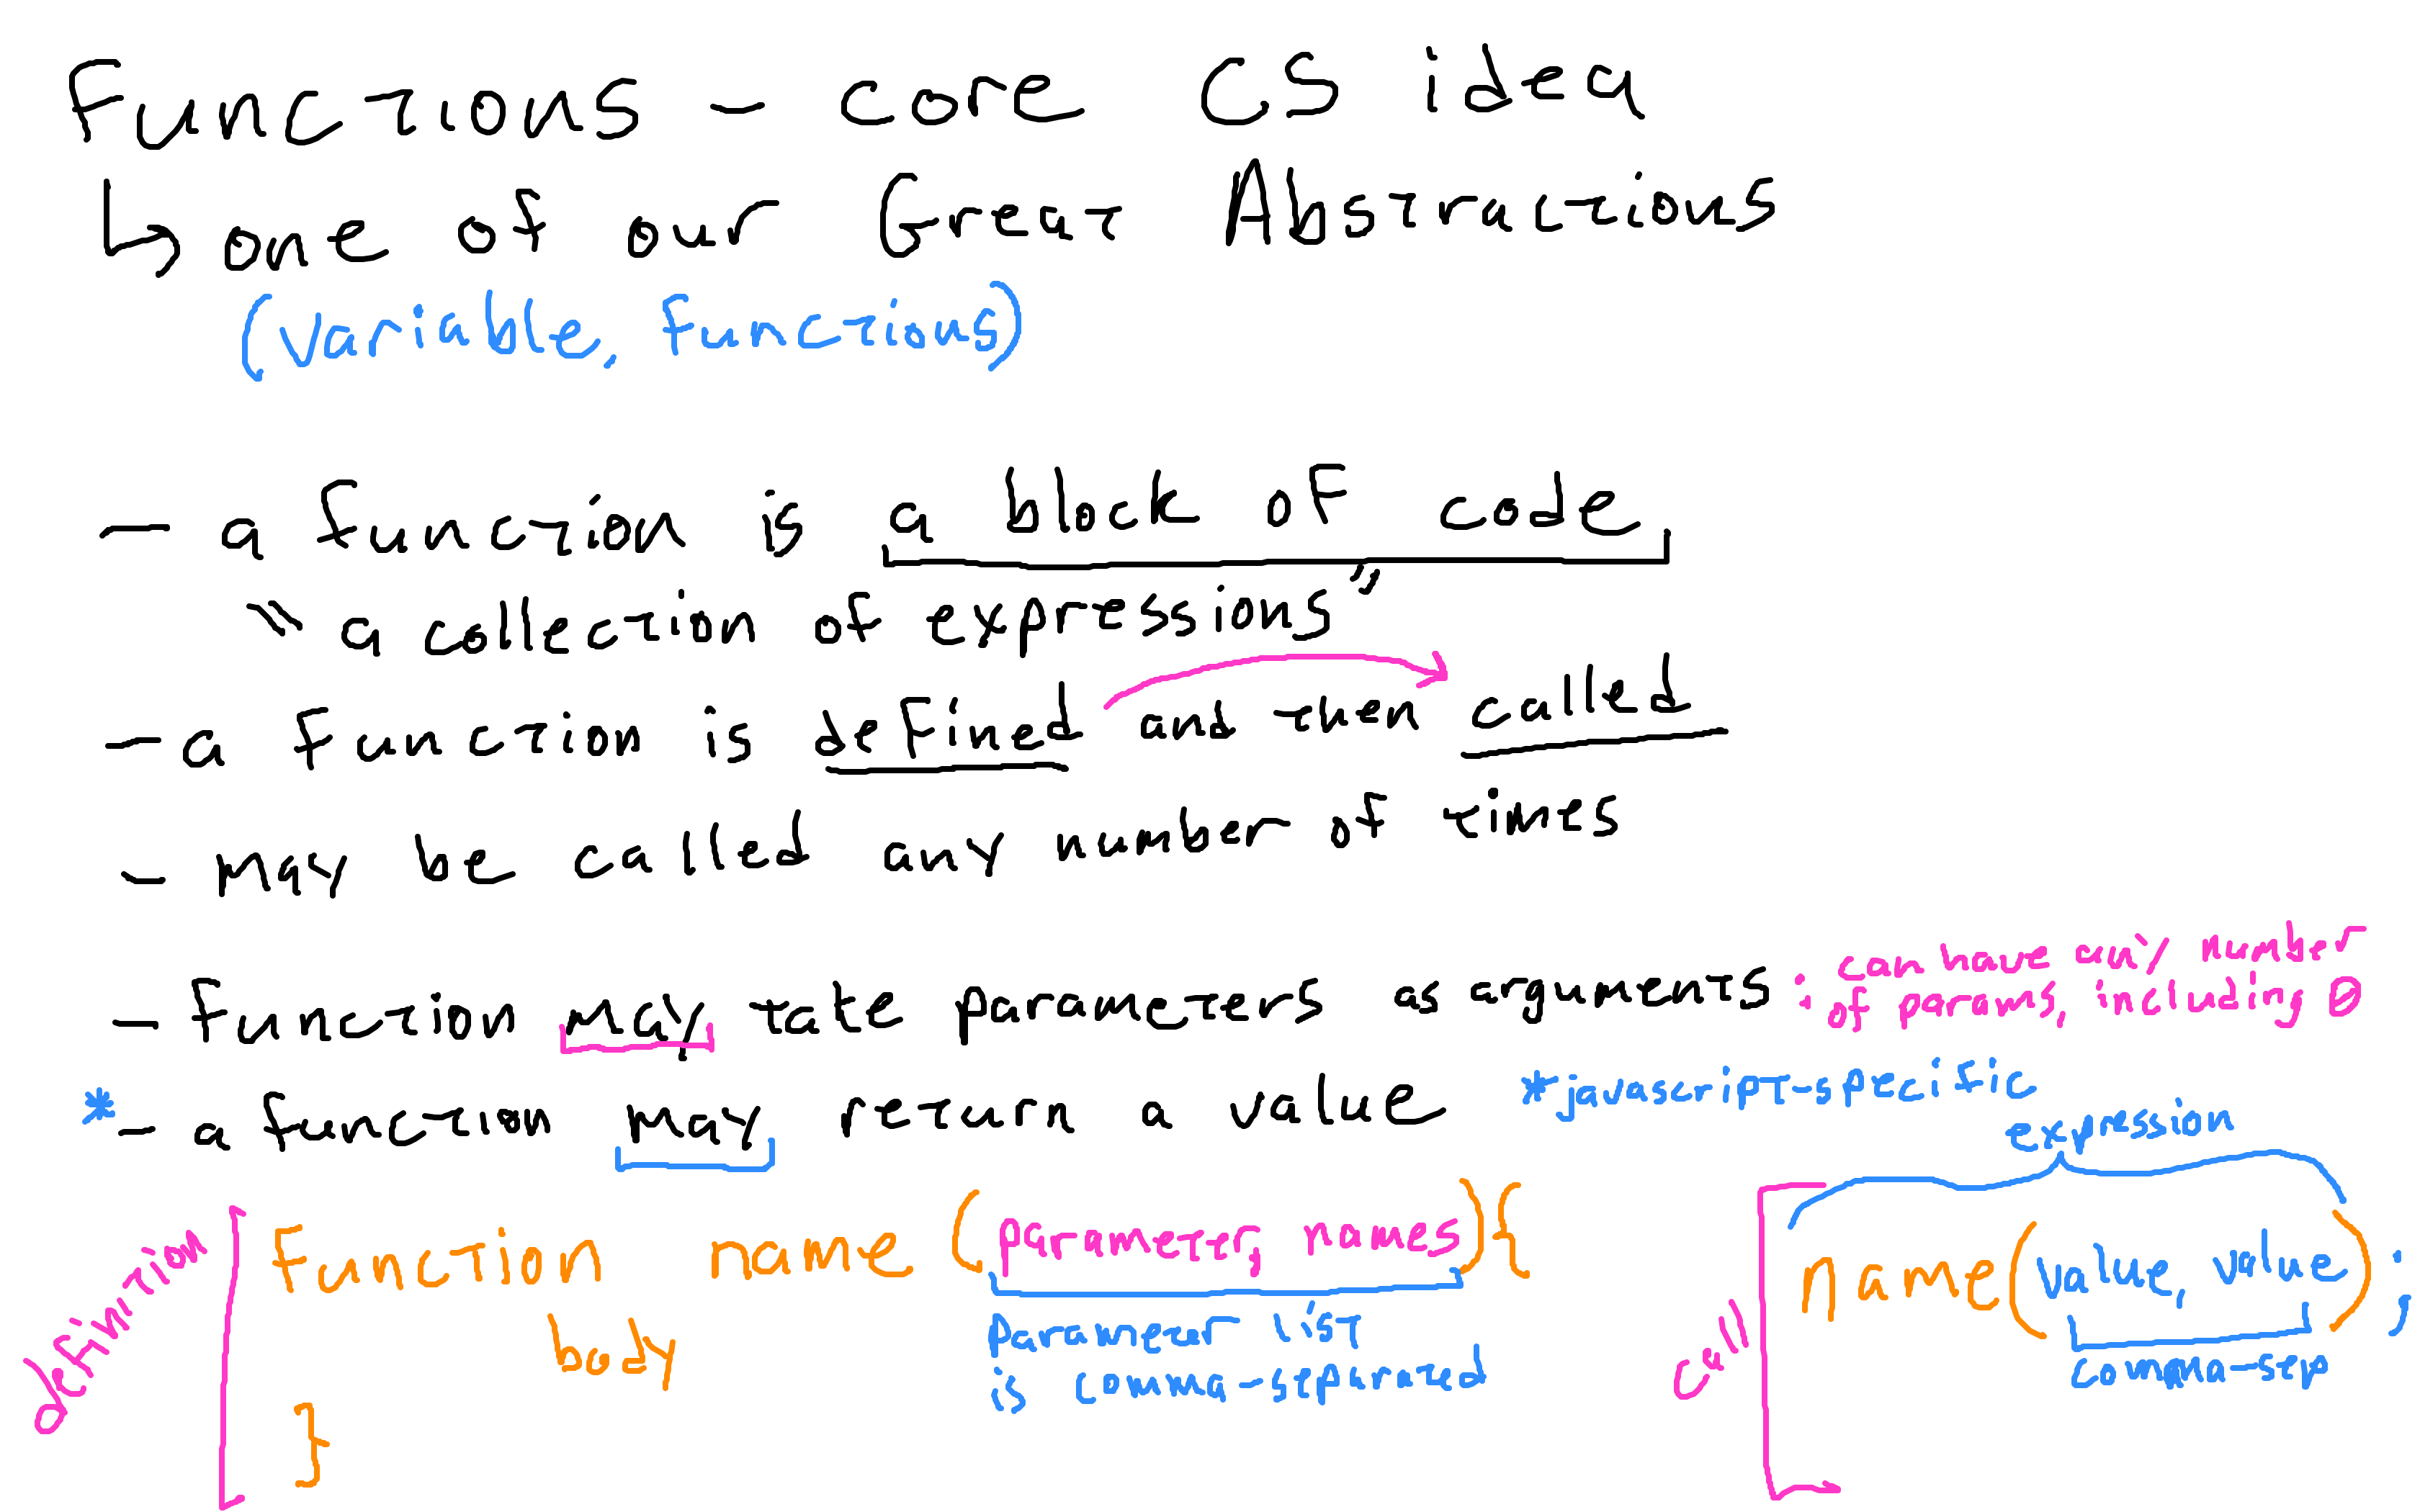 Functions - core CS idea
↳ one of our Great Abstractions
(variable, functions)
- a function is a block of code
"a collection of expressions"
- a function is defined and then called
- may be called any number of times
- function may take parameters as arguments
: can have any number
: of params, including 0
* - a function may return a value
*javascript-specific
expression
definition
function name (parameter, names) {
body
}
parameter list
is comma-separated
call
name(value, value);
comma-sep